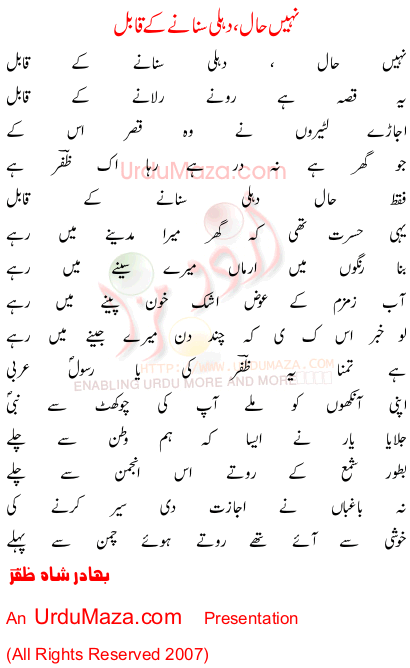 نہیں حال، دہلی سنانے کے قابل
نہیں حال ، دہلی سنانے کے قابل
یہ قصہ ہے رونے رلانے کے قابل
اجاڑے لٹیروں نے وہ قصر اس کے
جو گھر ہے نہ در ہے رہا اک ظفؔر ہے
فقط حال دہلی سنانے کے قابل
یہی حسرت تھی کہ گھر میرا مدینے میں رہے
بنا رنگوں میں ارماں میرے سینے میں رہے
آب زمزم کے عوض اشک خون پینے میں رہے
لو خبر اس ک ی کہ چند دن میرے جینے میں رہے
ہے تمنا یہ ظفؔر کی یا رسولؐ عربی
اپنی آنکھوں کو ملے آپ کی چوکھٹ سے نبیؐ
جلایا یار نے ایسا کہ ہم وطن سے چلے
بطور شمع کے روتے اس انجمن سے چلے
نہ باغباں نے اجازت دی سیر کرنے کی
خوشی سے آئے تھے روتے ہوئے چمن سے پہلے
بهادر شاه ظفرؔ
An UrduMaza.com Presentation
(All Rights Reserved 2007)
UrduMaza.com
اردو مزا
HTTP://WWW.URDUMAZA.COM
ENABLING URDU MORE AND MORE